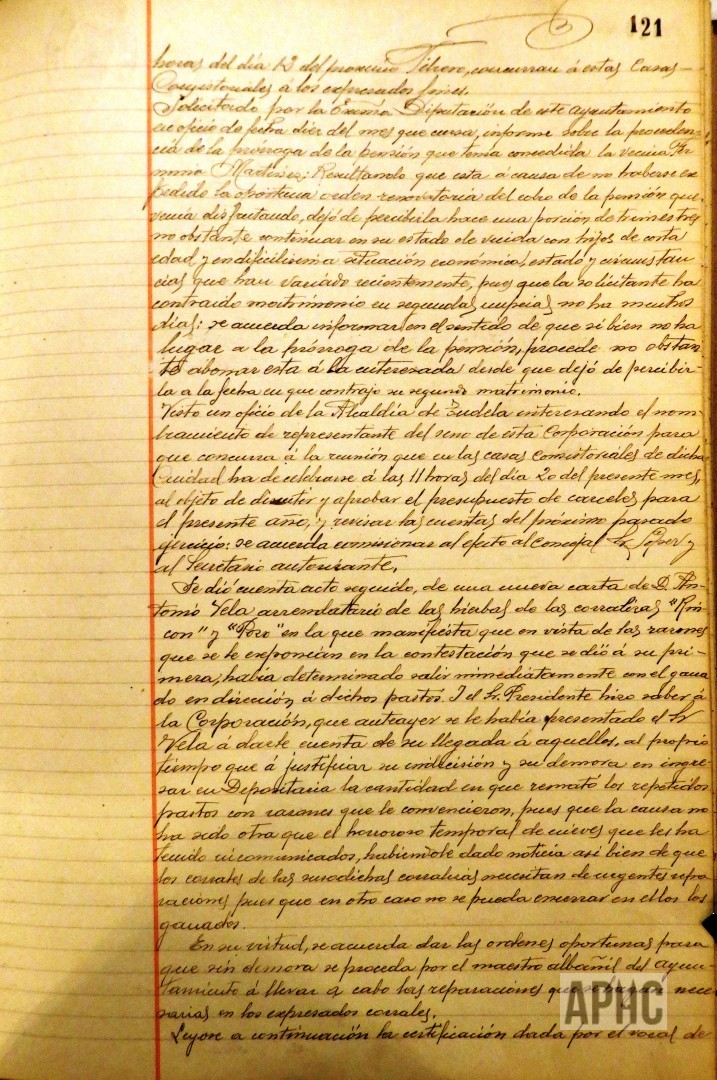 121
horas del día 12 del proximo Febrero, concurran á estas Casas
Consistoriales á los expresados fines.
Solicitado por la Exma. Diputación de este Ayuntamiento
en oficio de fecha diez del mes que cursa, informe sobre la proceden-
cia de la prórroga de la pensión que tenia concedida la vecina Fer
minia Martinez; Resultando que esta á causa de no haberse ex
pedido la oportuna orden renovatoria del cobro de la pensión que
venia disfrutando, dejó de percibirla hace una porción de trimestres
no obstante continuar en su estado de viuda con hijos de corta
edad y en dificilisima situación económica, estado y circunstan
cias que han variado recientemente, pues que la solicitante ha
contraido matrimonio en segundas nupcias no ha muchos
dias: se acuerda informar en el sentido de que si bien no ha
lugar a la prórroga de la pensión, procede no obstan-
te abonar esta á la interesada desde que dejó de percibir-
la a la fecha en que contrajo su segundo matrimonio.
Visto un oficio de la Alcaldía de Tudela interesando el nom-
bramiento de representante del seno de esta Corporación para
que concurra á la reunión que en las casas Consistoriales de dicha
Ciudad ha de celebrarse á las 11 horas del dia 20 del presente mes,
al objeto de discutir y aprobar el presupuesto de carceles para
el presente año, y revisar las cuentas del próximo pasado
ejercicio: se acuerda comisionar al efecto al Concejal Sr. Lopez y
al Secretario autorizante.
Se dió cuenta acto seguido, de una nueva carta de D. An-
tonio Vela arrendatario de las hierbas de las corralizas "Rin-
con" y "Pozo" en la que manifiesta que en vista de las razones
que se le exponian en la contestación que se dió á su pri-
mera, habia determinado salir inmediatamente con el gana
do en dirección á dichos pastos. Y el Sr. Presidente hizo saber á
la Corporación, que anteayer se le había presentado el Sr
Vela á darle cuenta de su llegada á aquellos, al propio
tiempo que á justificar su indecisión y su demora en ingre-
sar en Depositaria la cantidad en que remató los repetidos
pastos con razones que le convencieron, pues que la causa no
ha sido otra que el horroroso temporal de nieves que les ha
tenido incomunicados, habiéndole dado noticia asi bien de que
los corrales de las susodichas corralizas necesitan de urgentes repa
raciones pues que en otro caso no se puedan encerrar en ellos los
ganados.
En su virtud, se acuerda dar las ordenes oportunas para
que sin demora se proceda por el maestro albañil del Ayun-
tamiento á llevar a cabo las reparaciones que se hagan nece
sarias en los expresados corrales.
Leyose a continuación la certificación dada por el vocal de
APHC